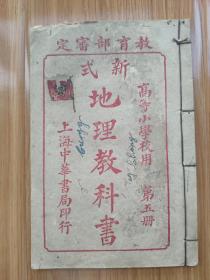 教育部審定
新式
高等小學校用 第五册
地理教科書
上海中華書局印行